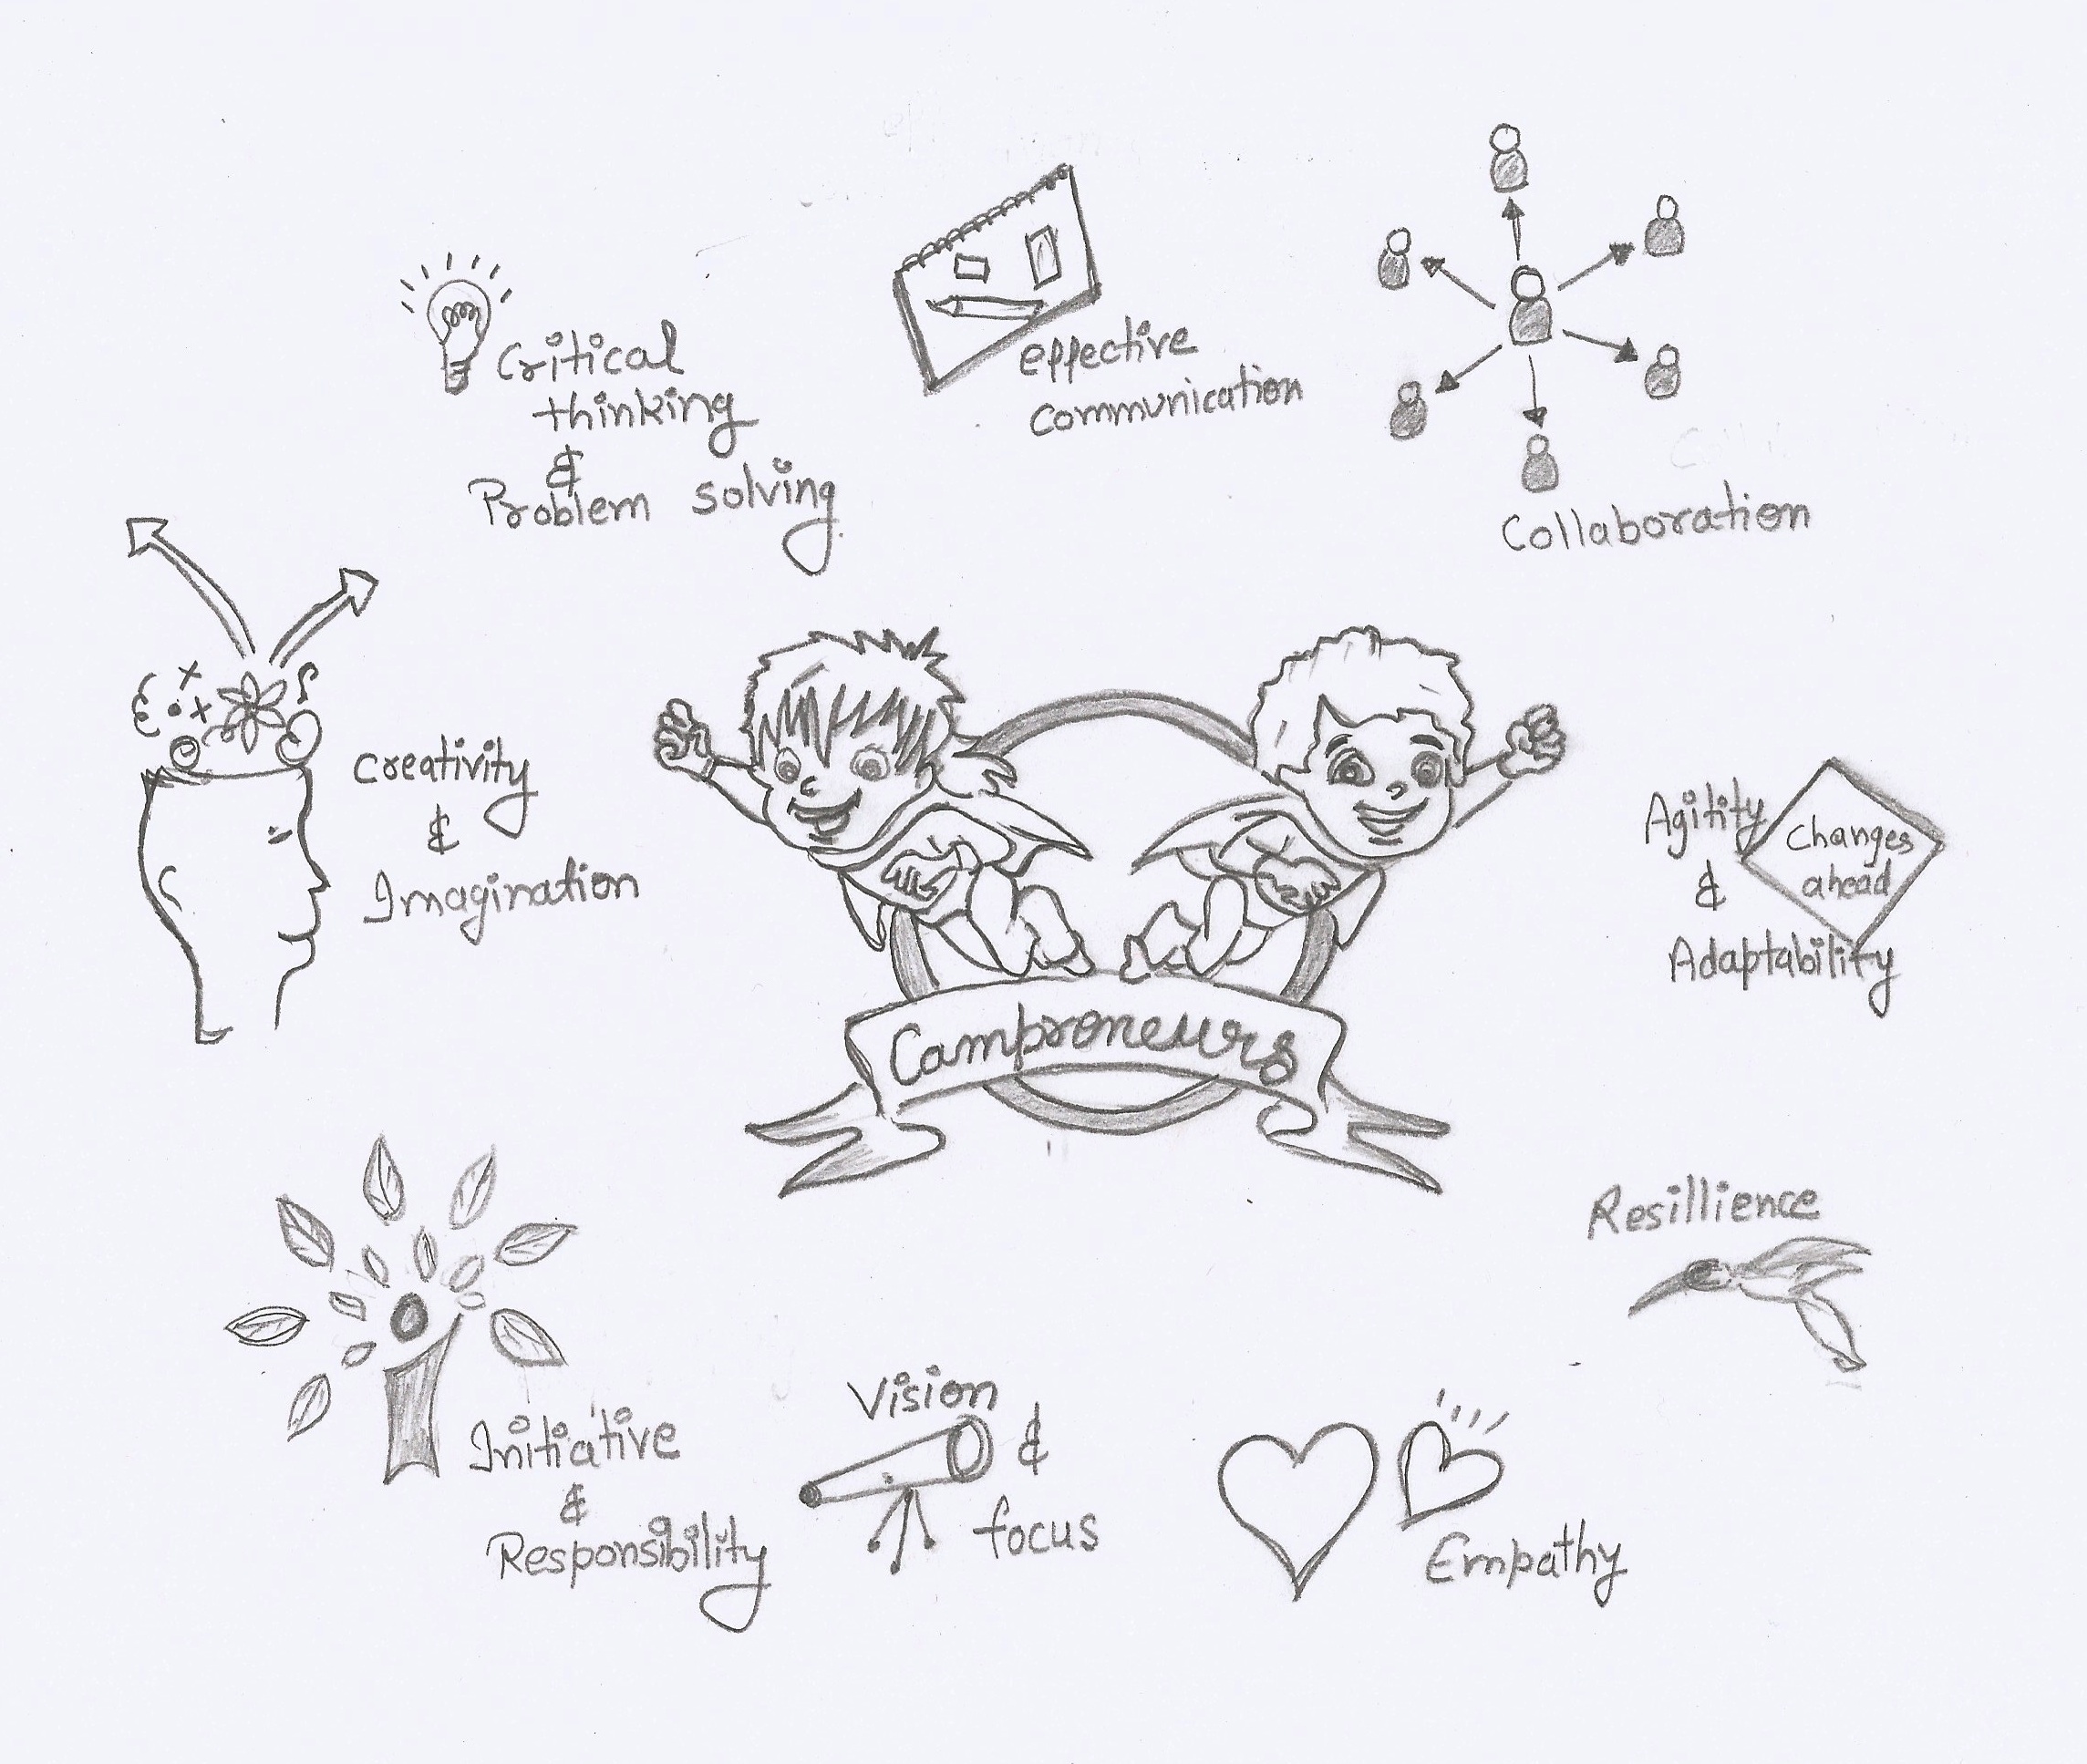 Critical
thinking
&
Problem solving
effective
communication
Collaboration
Creativity
&
Imagination
Campreneurs
Agitity
&
Adaptability
Changes
ahead
Resillience
Initiative
&
Responsibility
Vision
&
focus
Empathy